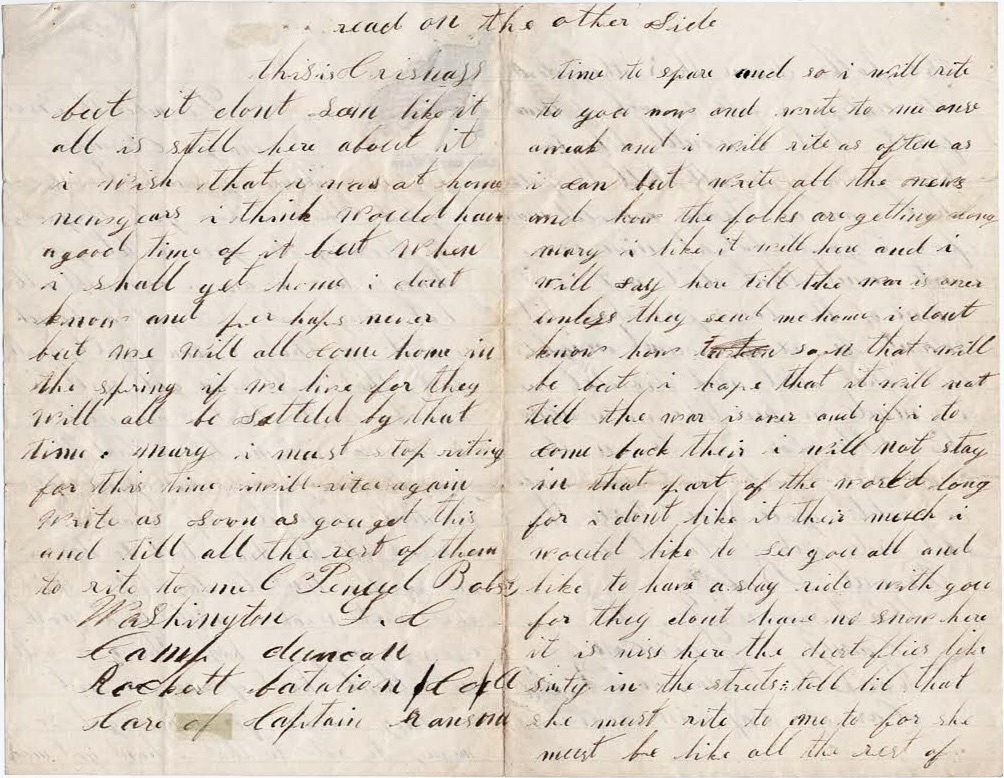 read on the other Side
this is Crismass
but it dont seem like it
all is still here about it
i wish that i was at home
newsyears i think would have
a good time of it but when
i shall get home i dont
know and per haps never
but we will all come home in
the spring if we live for they
will all be settled by that
time . mary i must stop riting
for this time i will rite again
write as soon as you get this
and till all the rest of them
to rite to me C
Washington D. C
Camp duncan
Rockett batalion
Care of Captain Ransom
time to spare and so i will rite
to you now and write to me onse
aweak and i will rite as often as
i can but write all the news
and how the folks are getting along
mary i like it will here and i
will say here till the war is over
unless they send me home i dont
know how soon that will
be but i hope that it will not
till the war is over and if i do
come back their i will not stay
in that part of the world long
for i dont like it their much i
would like to see you all and
like to have a slay ride with you
for they dont have no snow here
it is niss here the durt flies like
sixty in the streets : tell lib that
she must rite to me to for she
must be like all the rest of